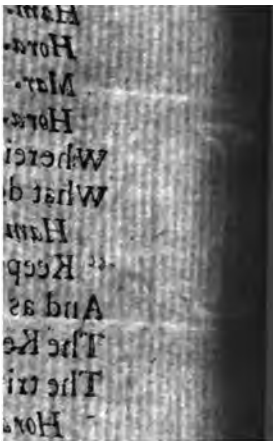 Ham.
Hora.
Mar.
Hora.
Wherei
What d
Ham
“ Keep
And as
The Ke
The tri
Hora